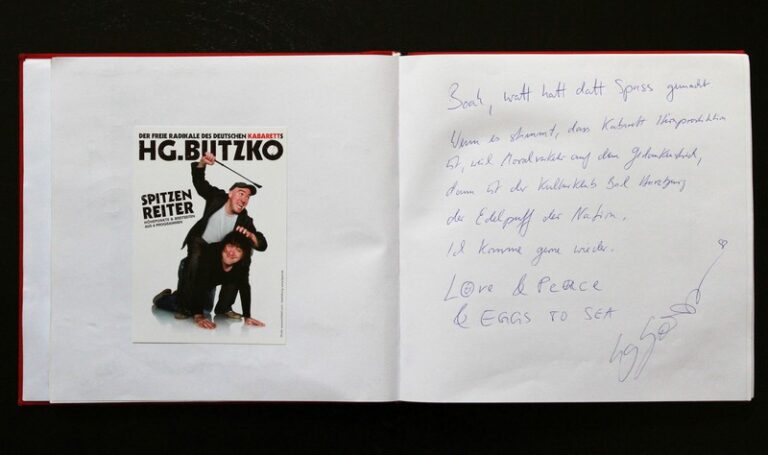 DER FREIE RADIKALE DES DEUTSCHEN KABARETTS
HG.BUTZKO
SPITZEN
REITER
HÖHEPUNKTE & BESTZEITEN
AUS 6 PROGRAMMEN
Boah, watt hatt datt Spass gemacht
Wenn es stimmt, dass Kabarett Hirnprostitution
ist, weil Moralverkehr auf dem Gedankenstrich,
dann ist der Kulturklub Bad
der Edelpuff der Nation.
Ich komme gerne wieder.
Love & Peace
& EGGS TO SEA